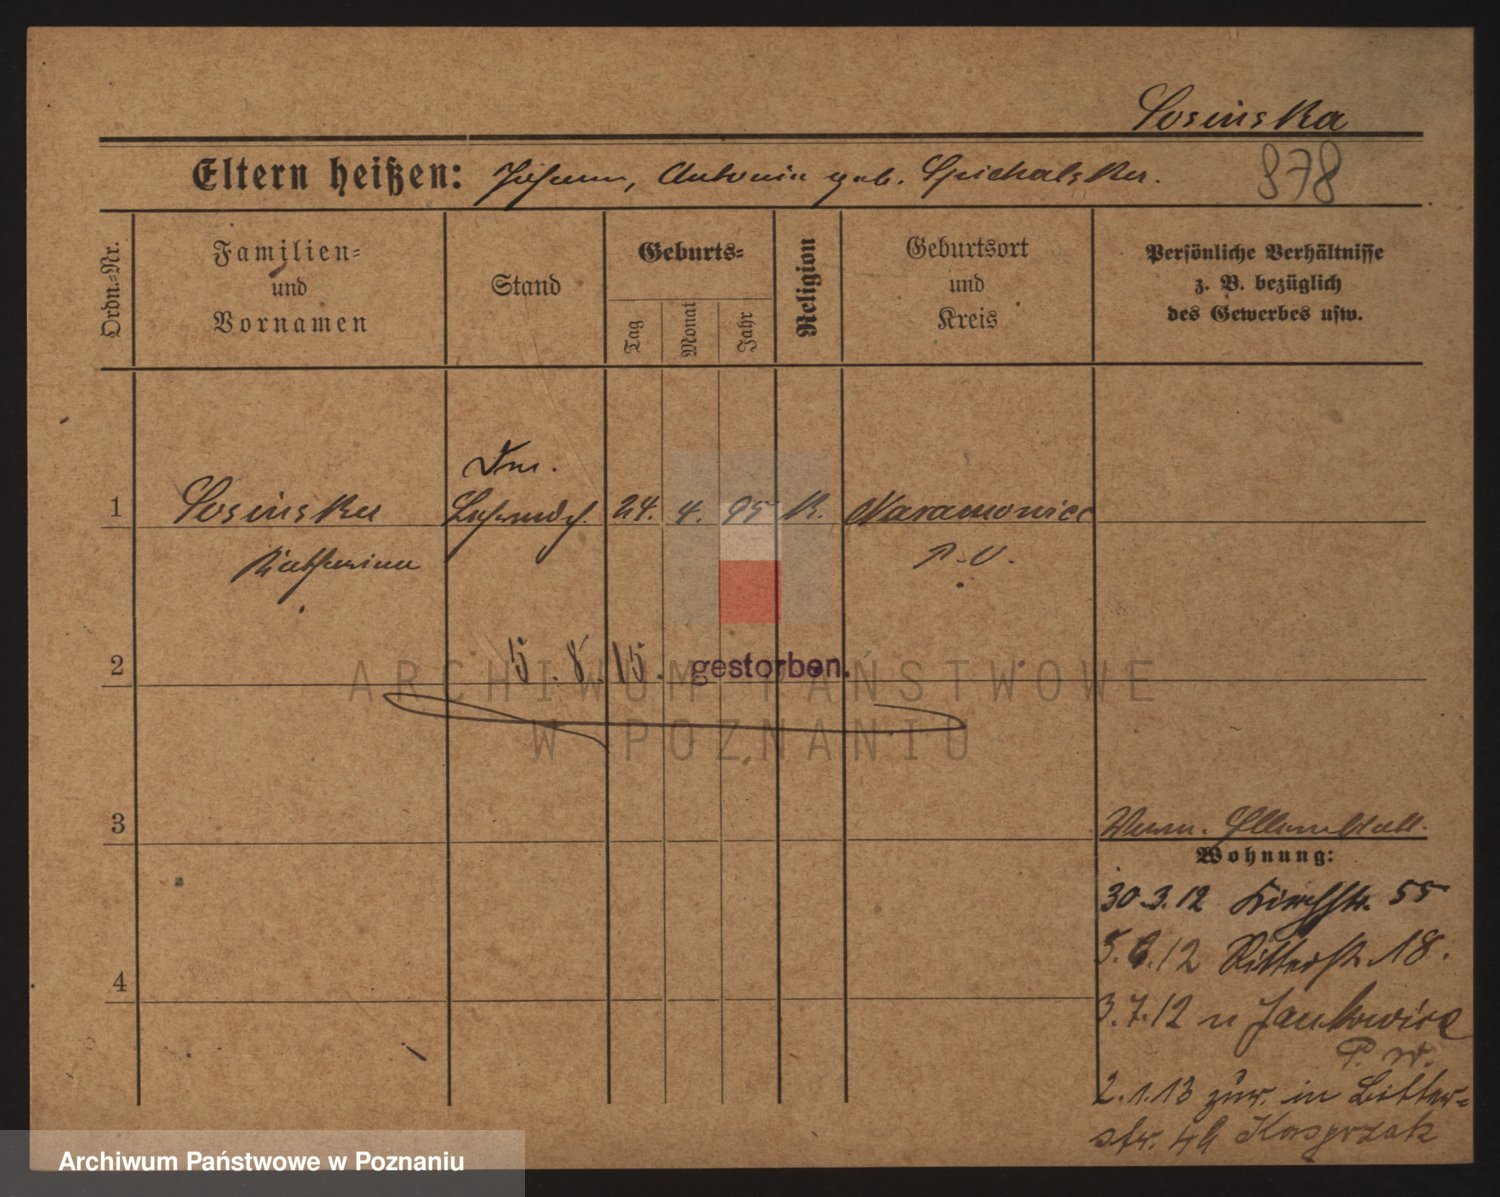 Sosinska
Eltern heißen: Johann, Antonie geb. Spichalska.
878
Ordn.-Nr.
Familien-
und
Vornamen
Stand
Geburts-
Tag
Monat
Jahr
Religion
Geburtsort
und
Kreis
Persönliche Verhältnisse
z. B. bezüglich
des Gewerbes usw.
1
Sosinska
Katharina
24. 4. 95 K. Naramowice
P. O.
2
5. 8. 15. gestorben.
ARCHIWUM PAŃSTWOWE
W POZNANIU
3
Wohnung:
30.3.12 Kirchstr. 55
5.6.12 Ritterstr. 18.
4
3.7.12 n Jankowice
P. W.
2.1.13 zur. in Ritter-
str. 4b Kasprzak
Archiwum Państwowe w Poznaniu